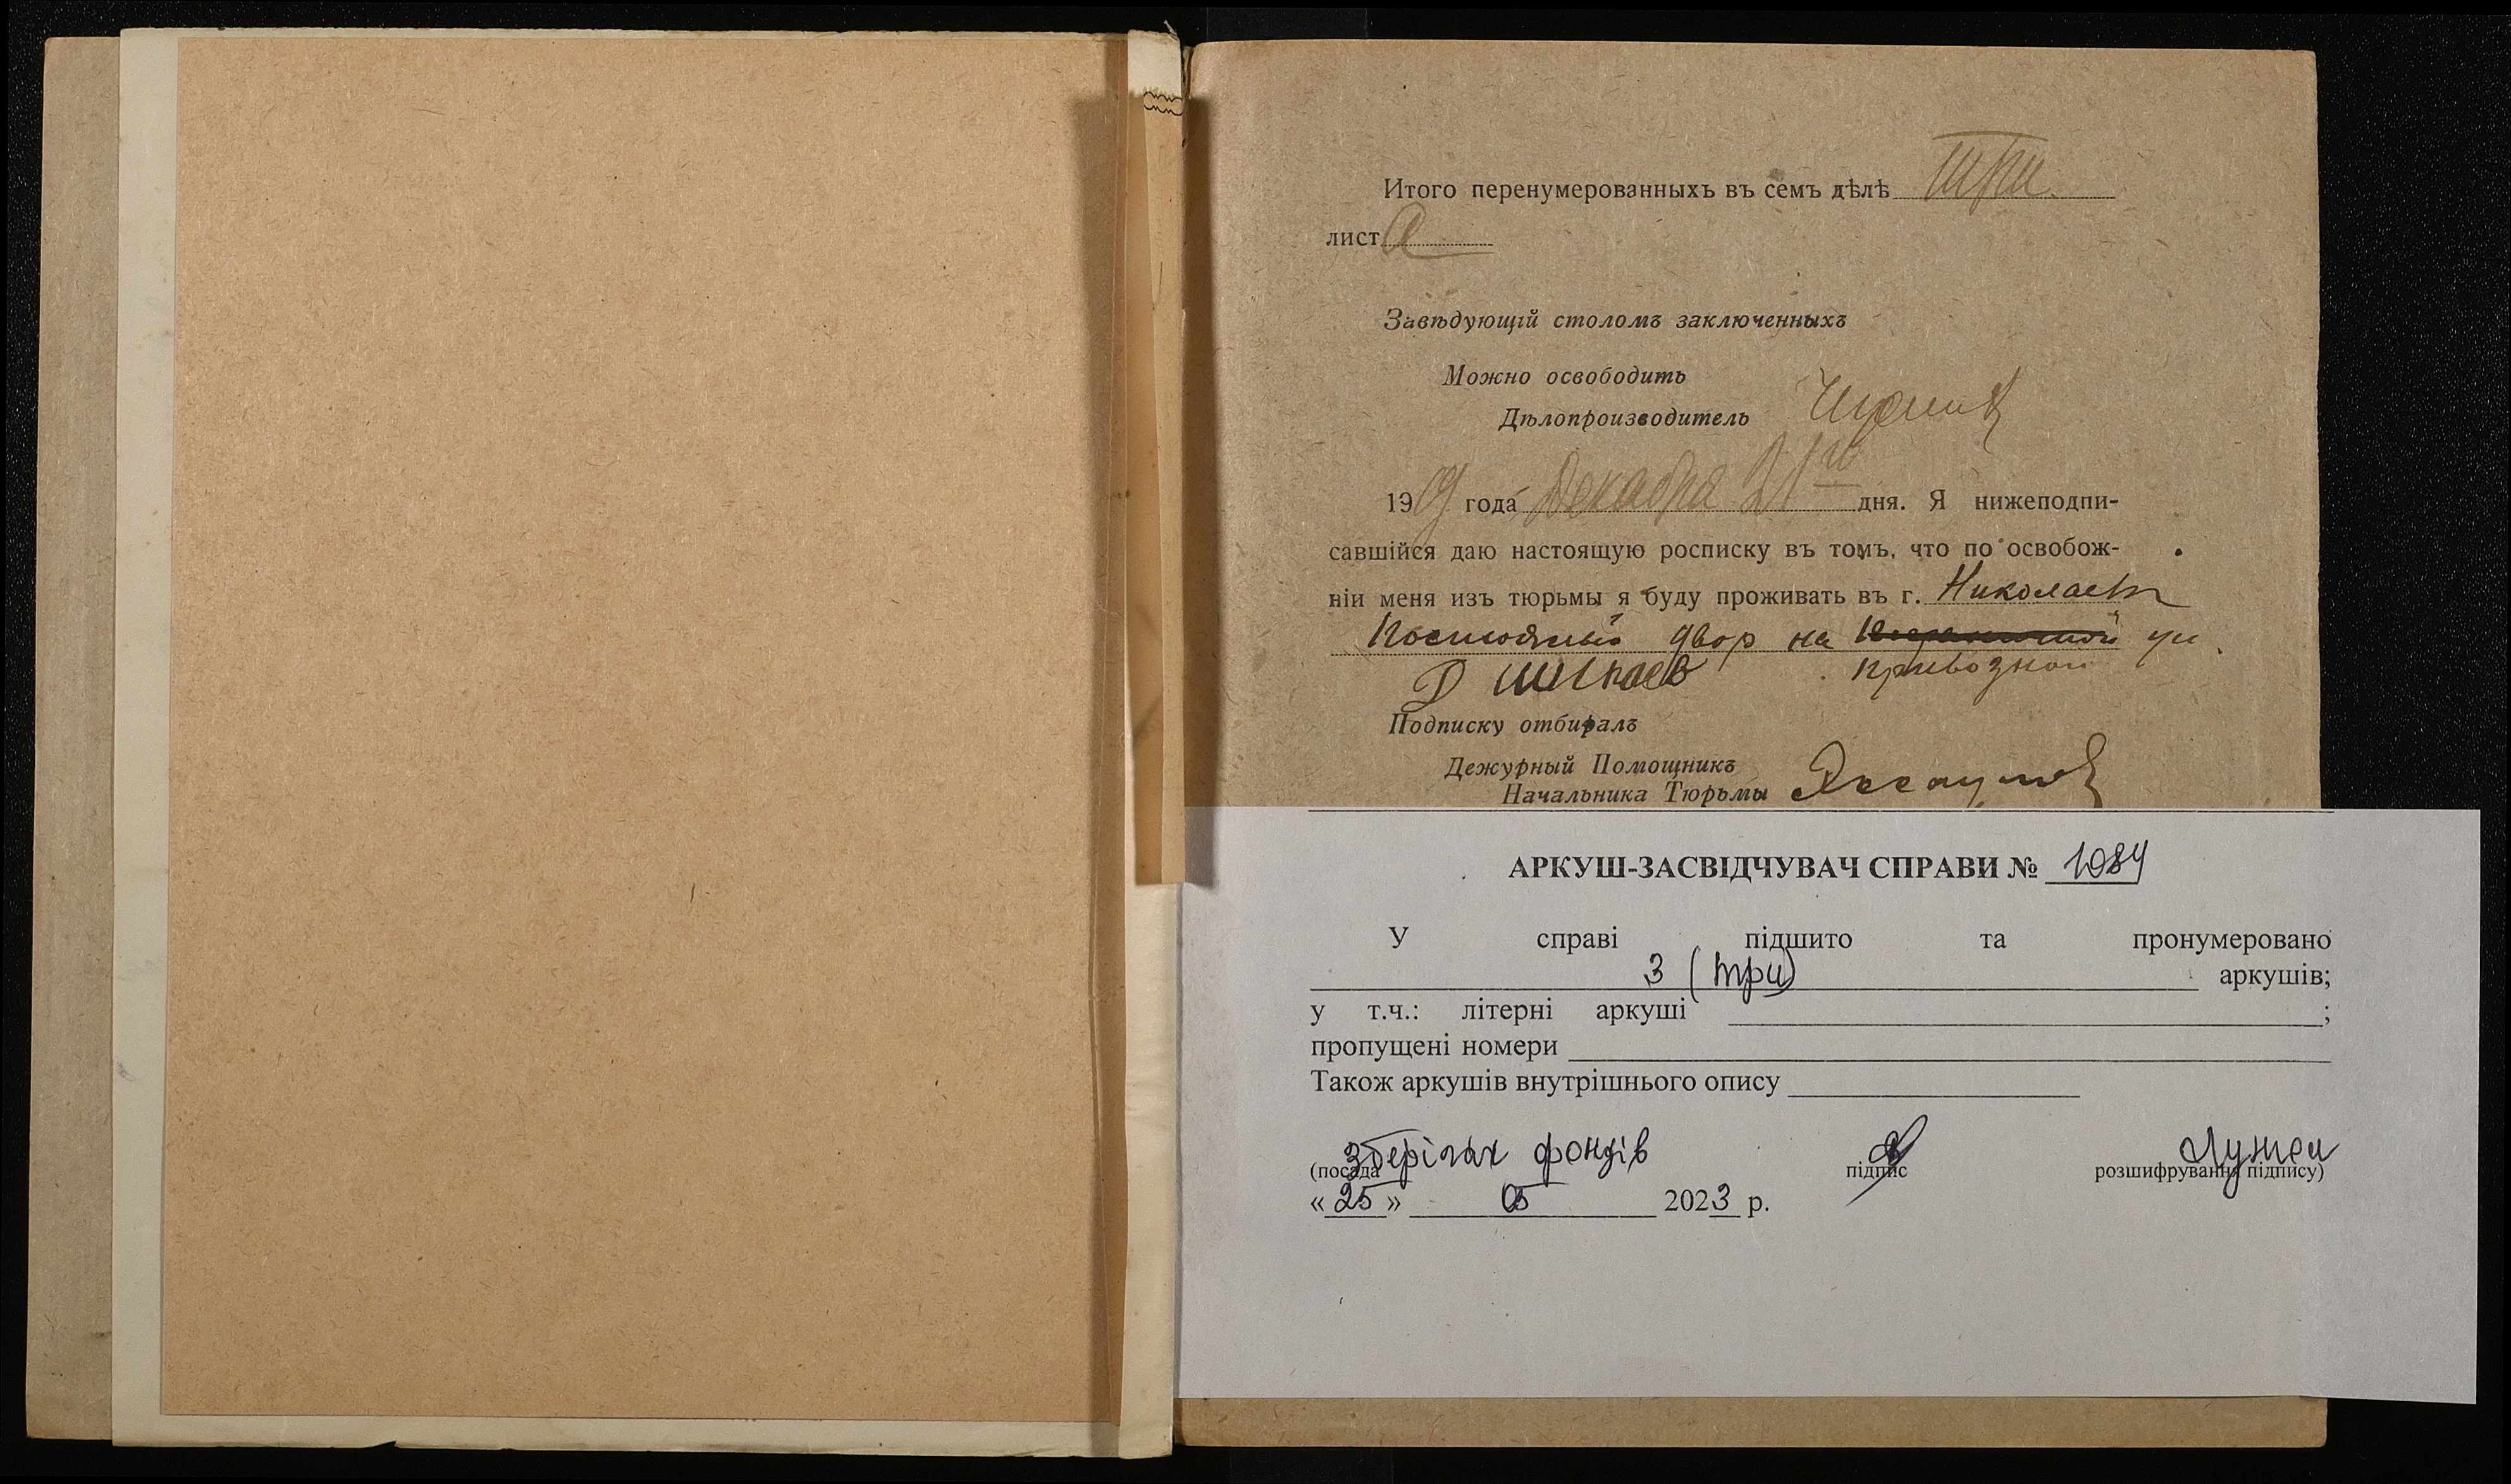 Итого перенумерованныхъ въ семъ дѣлѣ три
листа
Завѣдующій столомъ заключенныхъ
Можно освободить
Дѣлопроизводитель
1909 года Декабря 21го дня. Я нижеподпи-
савшійся даю настоящую росписку въ томъ, что по освобож-
ніи меня изъ тюрьмы я буду проживать въ г. Николаевъ
Постоялый двор на ул
Привозной
Подписку отбиралъ
Дежурный Помощникъ
Начальника Тюрьмы
АРКУШ-ЗАСВІДЧУВАЧ СПРАВИ № 1084
У справі підшито та пронумеровано
3 (три) аркушів;
у т.ч.: літерні аркуші ;
пропущені номери
Також аркушів внутрішнього опису
Зберігач фондів
(посада підпис розшифрування підпису)
«25» 05 2023 р.